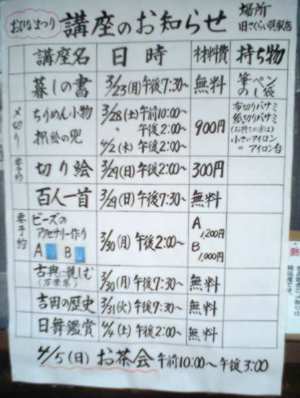 おひなまつり 講座のお知らせ 場所
旧さくらい呉服店
講座名 日時 材料費 持ち物
暮しの書 3/23(月)午後7:30~ 無料 筆ペン
のし袋
〆切り ちりめん小物 3/28(土)午前10:00~
午後2:00~
押絵の兜 4/2(木)午後2:00~
900円
布切りバサミ
紙切りバサミ
(お持ちの方は)
小さいアイロン
=アイロン台
要予約 切り絵 3/29(日)午後2:00~ 300円
百人一首 3/29(日)午後7:30~ 無料
要予約 ビーズの
アクセサリー作り
A B
3/30(月)午後2:00~
A 1,200円
B 1,000円
古典に親しむ
(万葉集)
3/30(月)午後7:30~ 無料
吉田の歴史 3/31(火)午後7:30~ 無料
日舞鑑賞 (土)午後2:00~ 無料
4/5(日) お茶会 午前10:00~午後3:00